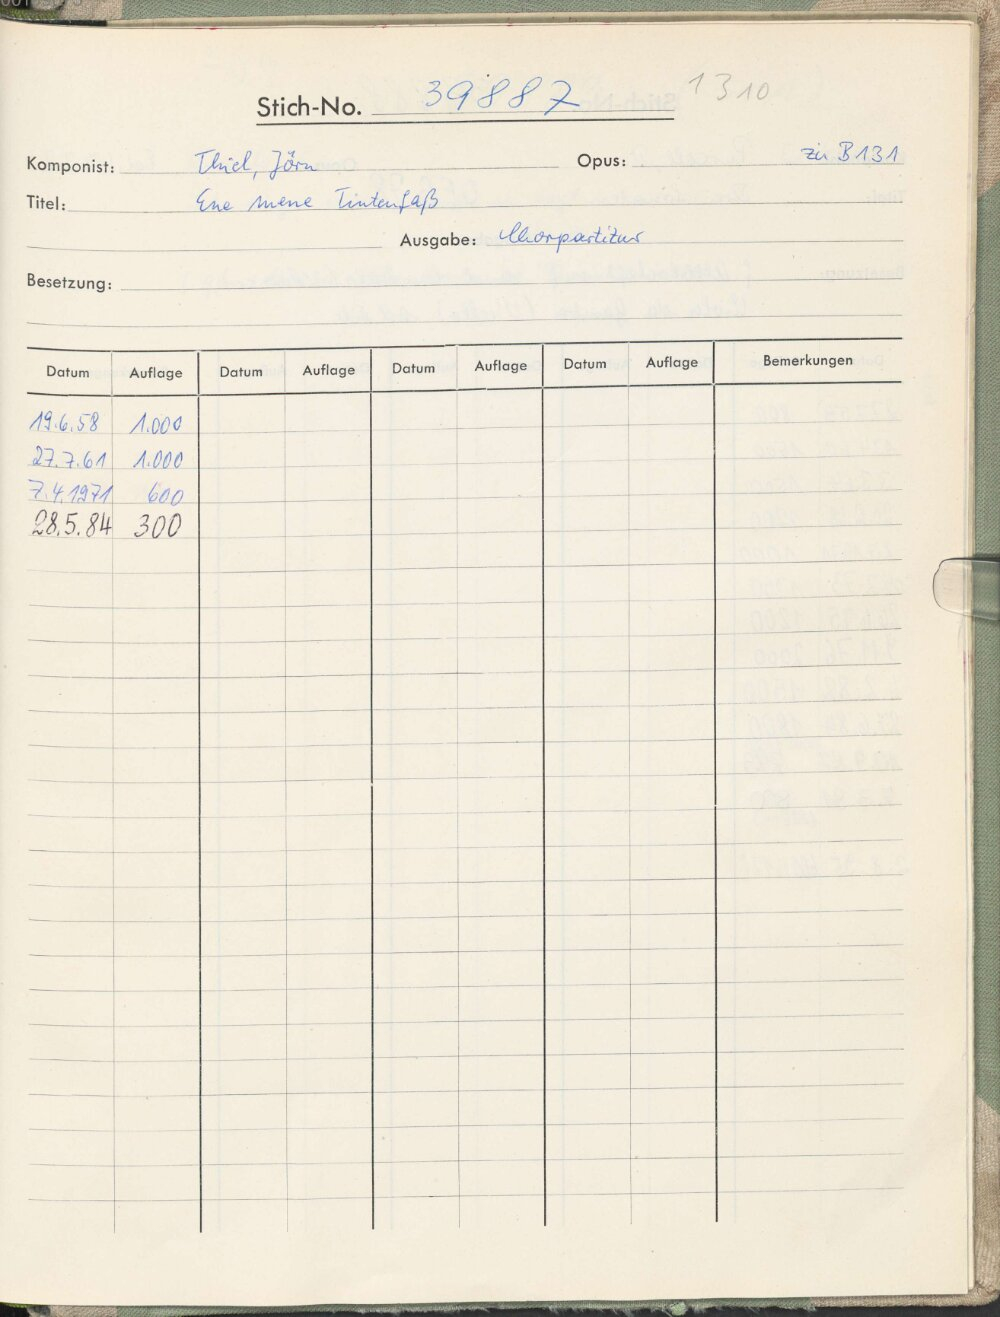 Stich-No. 39887 1310
Komponist: Thiel, Jörn Opus: zu B131
Titel: Ene mene Tintenfaß
Ausgabe: Chorpartitur
Besetzung:
Datum Auflage Datum Auflage Datum Auflage Datum Auflage Bemerkungen
19.6.58 1.000
27.7.61 1.000
7.4.1971 600
28.5.84 300